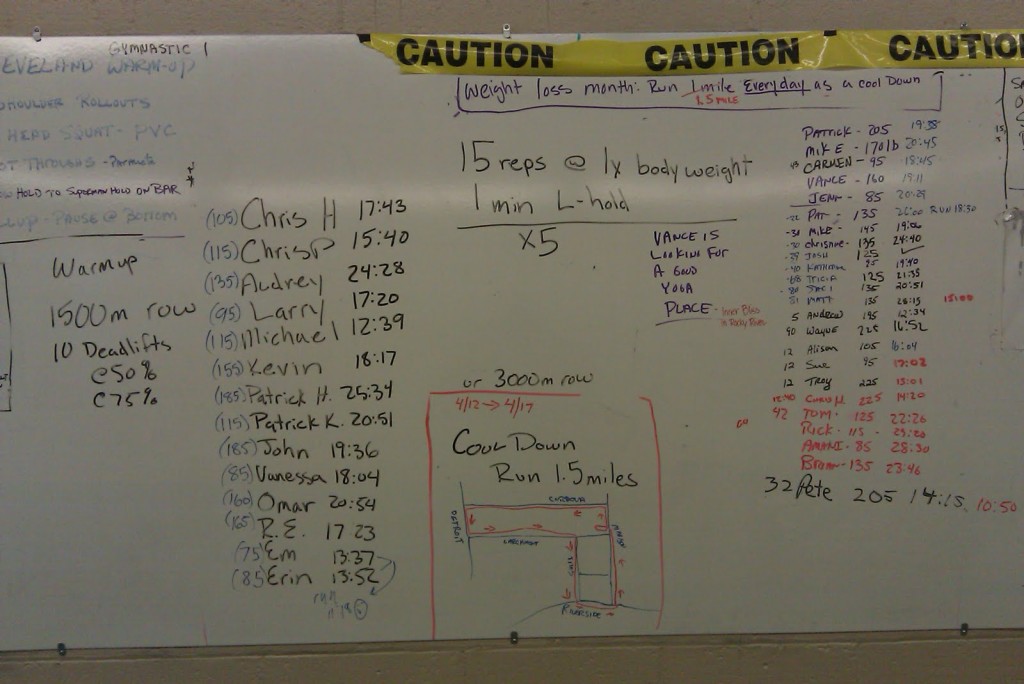 GYMNASTIC
EVELAND WARM-UP
SHOULDER ROLLOUTS
HEAD SQUAT - PVC
THROUGHS -
HOLD TO SUPERMAN HOLD ON BAR
PAUSE @ BOTTOM
Warmup
1500m row
10 Deadlifts
@50%
@75%
(105) Chris H 17:43
(115) Chris P 15:40
(135) Audrey 24:28
(95) Larry 17:20
(115) Michael 12:39
(155) Kevin 18:17
(185) Patrick H. 25:34
(115) Patrick K. 20:51
(185) John 19:36
(85) Vanessa 18:04
(160) Omar 20:54
(165) R.E. 17 23
(75) Em 13:37
(85) Erin 13:52
run
CAUTION CAUTION CAUTIO
Weight loss month: Run 1mile Everyday as a cool Down
1.5 MILE
15 reps @ 1x body weight
1 min L-hold
X5
VANCE IS
LOOKING FOR
A GOOD
YOGA
PLACE - Inner Bliss
in Rocky River
or 3000m row
4/12 → 4/17
COOL DOWN
Run 1.5 miles
DETROIT
RIVERSIDE
PATRICK - 205 19:38
MIKE - 170lb 20:45
CARMEN - 95 18:45
VANCE - 160 19:11
JENN - 85 20:29
PAT - 135 26:00 RUN 18:30
MIKE - 145
135 24:40
JOSH 125 ✓
95 19:40
TRICIA 125 21:35
135 20:51
MATT 135 28:15 15:00
5 Andrew 195 12:34
90 Wayne 225 16:52
12 Alison 105 16:04
12 Sue 95 17:02
12 Troy 225 13:01
CHRIS M 225 14:20
42 TOM - 125 22:26
RICK - 115 - 25:20
AMANI - 85 28:30
BRIAN - 135 23:46
32 Pete 205 14:15 10:50